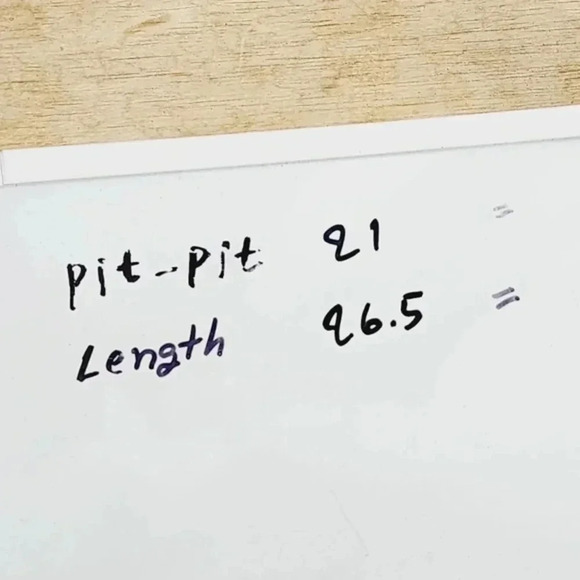 pit-pit 21 "
Length 26.5 "